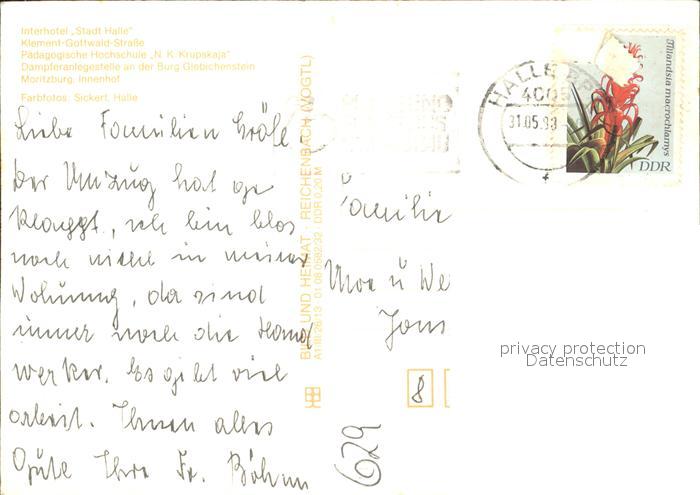 Interhotel „Stadt Halle"
Klement-Gottwald-Straße
Pädagogische Hochschule „N. K. Krupskaja"
Dampferanlegestelle an der Burg Giebichenstein
Moritzburg, Innenhof
Farbfotos: Sickert, Halle
Liebe Familien
der Umzug hat ge
klappt, ich bin blos
noch nicht in meiner
Wohnung, da sind
immer noch die Hand
werker. Es gibt viel
arbeit. Ihnen alles
Gute Ihre Fr. Böhm
BILD UND HEIMAT · REICHENBACH (VOGTL)
A1/III/26/13 01 08 0582/32 DDR 0,20 M
HALLE
4005
31.05.90
Tillandsia macrochlamys
DDR
Familie
u We
Jons
8
629
privacy protection
Datenschutz